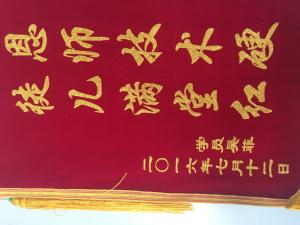 恩师技术硬
儿满堂红
学员吴菲
二〇一六年七月十二日